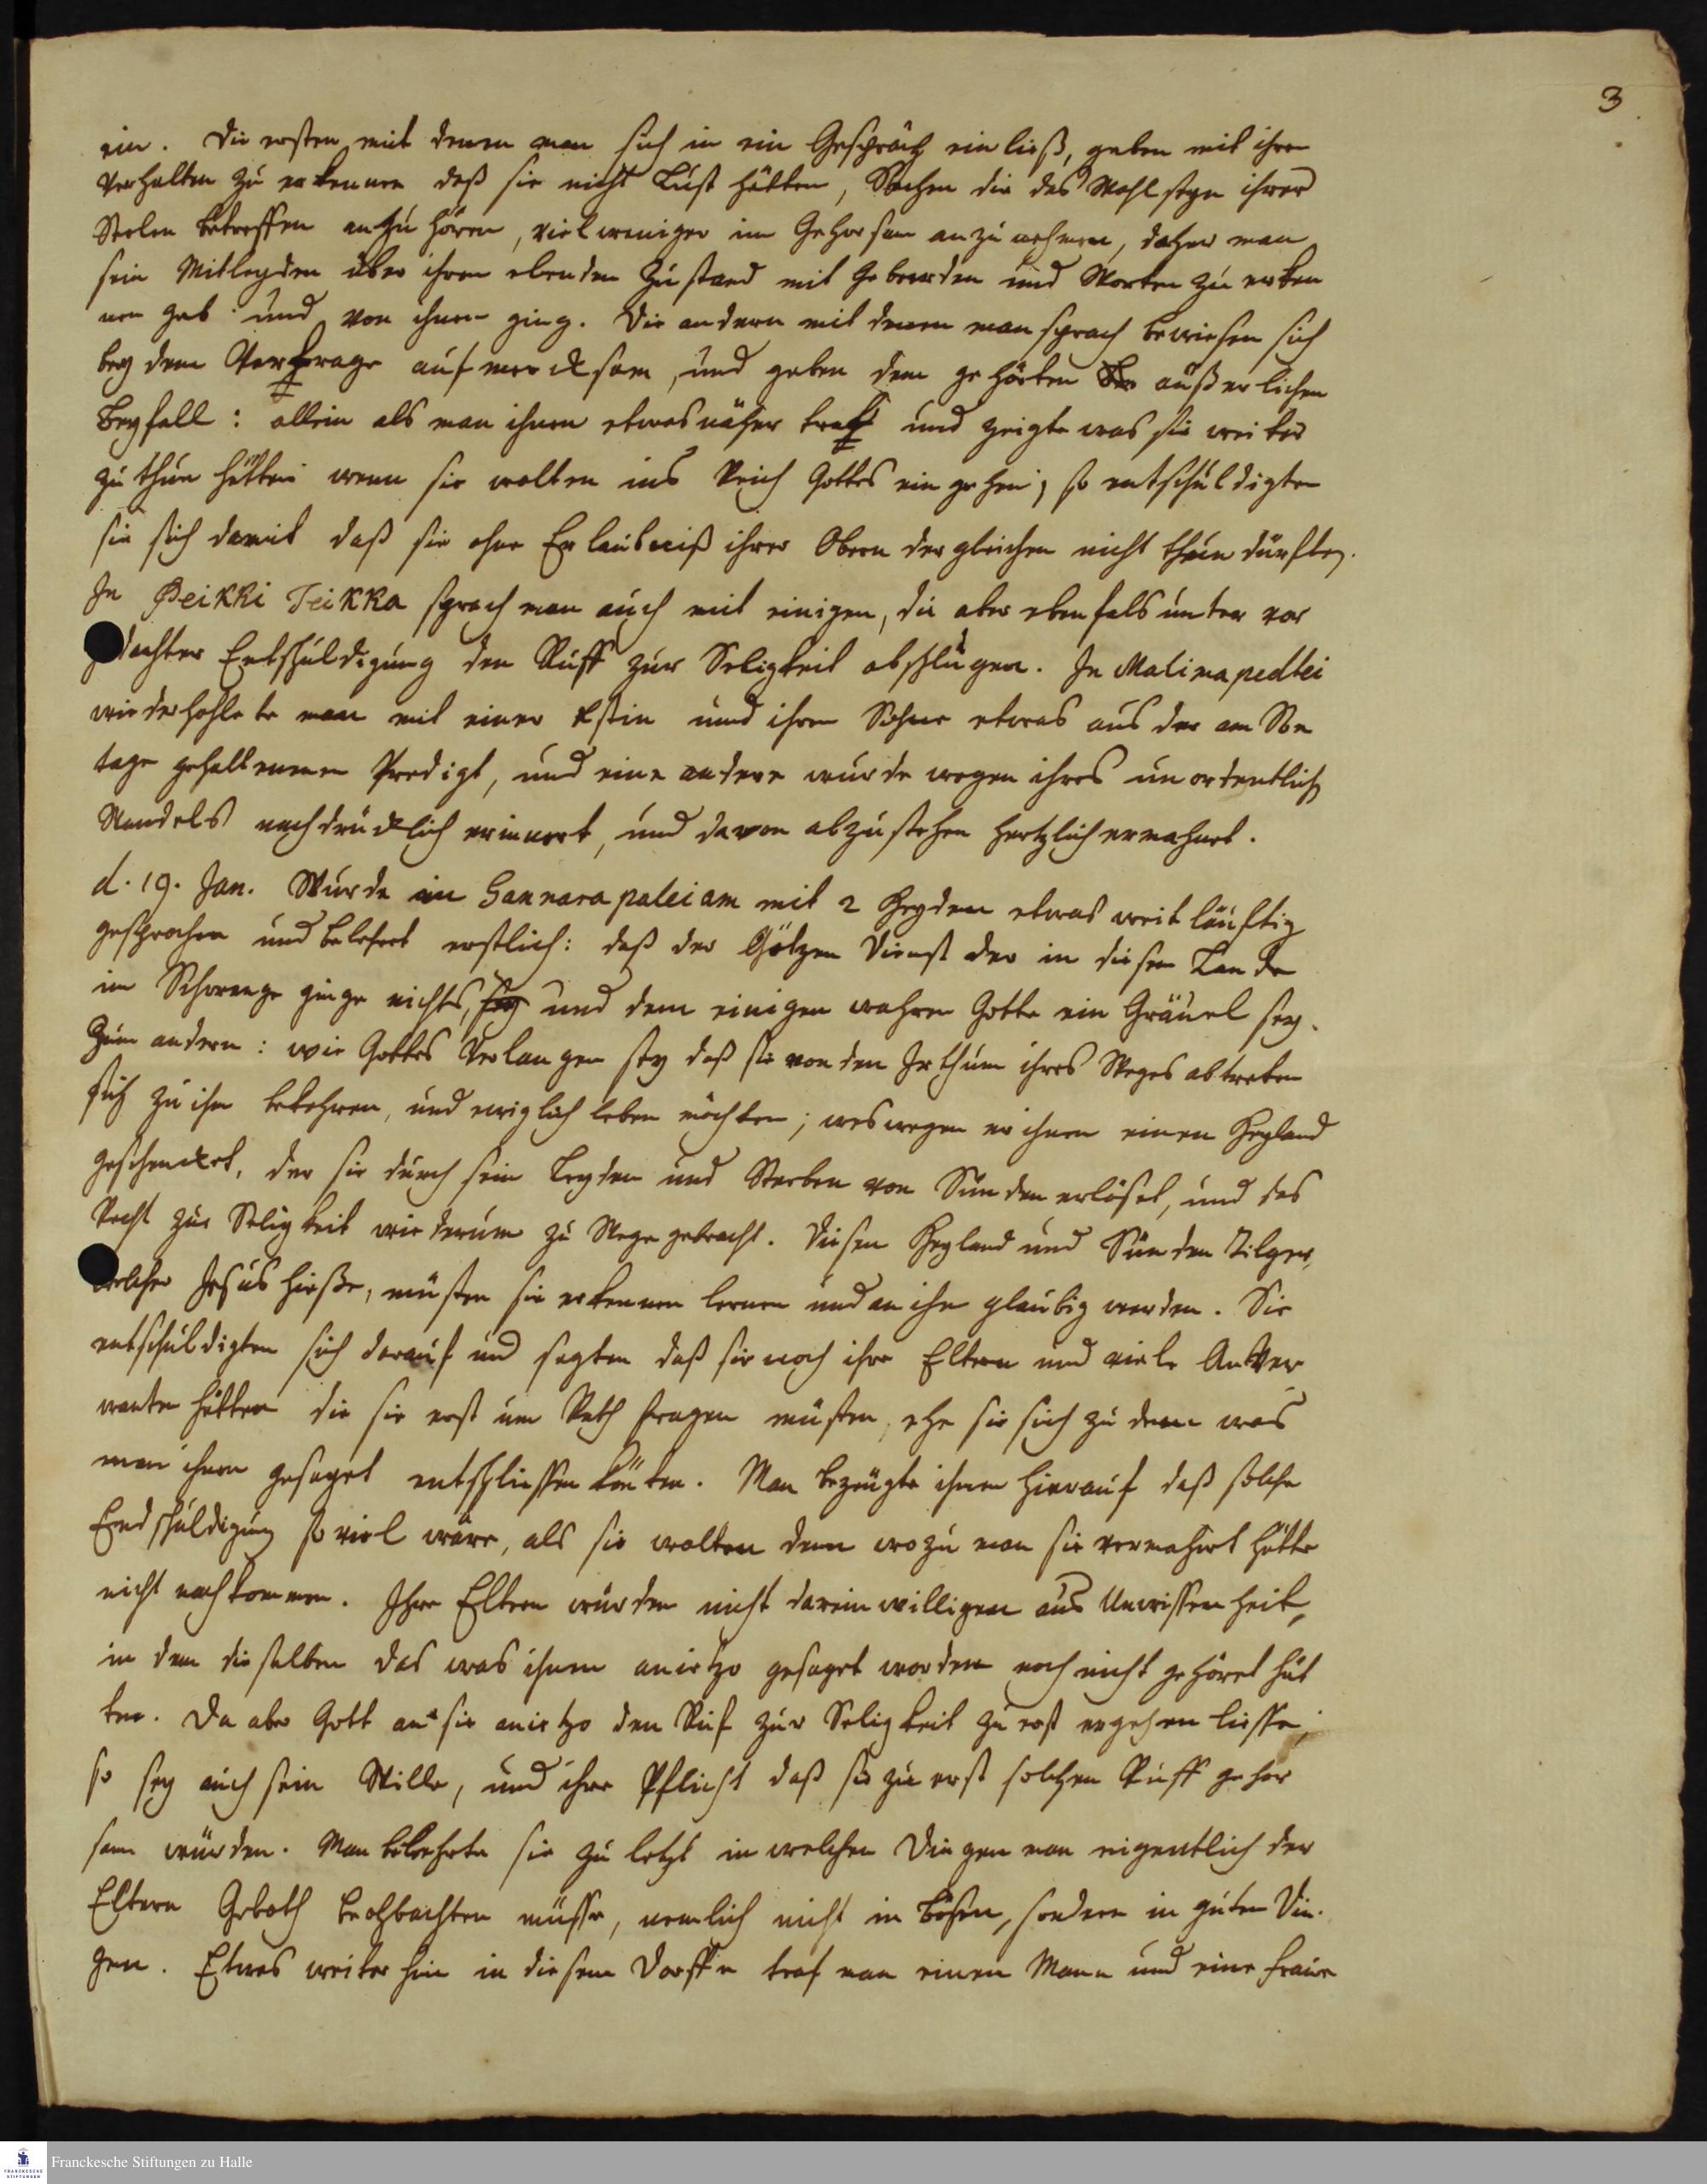 3
ein. Die ersten mit denen man sich in ein Gespräch einließ, gaben mit ihren
Verhalten zu erkennen daß sie nicht Lust hätten, Sachen die das Wohlseyn ihrer
Seelen betreffen anzuhören, vielweniger im Gehorsam anzunehmen, daher man
sein Mitleyden über ihren elenden Zustand mit Gebeerden und Worten zu erken
nen gab und von ihnen ging. Die andern mit denen man sprach bewiesen sich
bey dem Vortrage aufmercksam, und gaben dem gehörten äußerlichen
Beyfall: allein als man ihnen etwas näher trat und zeigte was sie weiter
zu thun hätten wenn sie wolten ins Reich Gottes eingehen; so entschuldigten
sie sich damit daß sie ohne Erlaubniß ihrer Obern dergleichen nicht thun dürften.
In Peikki Teikka sprach man auch mit einigen, die aber ebenfals unter vor
gedachter Entschuldigung den Ruff zur Seligkeit abschlugen. In Malinapedtei
wiederhohlete man mit einer Xstin und ihren Sohne etwas aus der am Son
tage gehaltenenen Predigt, und eine andere wurde wegen ihres unordentlich
Wandels nachdrücklich erinnert, und davon abzustehen hertzlich ermahnet.
d. 19. Jan. Wurde in Sannarapaleiam mit 2 Heyden etwas weitläuftig
gesprochen und belehret erstlich: daß der Götzen Dienst der in diesen Lande
im Schwange ginge nichts, sey und dem einigen wahren Gotte ein Gräuel sey.
Zum andern: wie Gottes Verlangen sey daß sie von den Irthum ihres Weges abtreten
sich zu ihm bekehren, und ewiglich leben möchten; weswegen er ihnen einen Heyland
geschencket, der sie durch sein Leyden und Sterben von Sünden erlöset, und das
Recht zur Seligkeit wiederum zu Wege gebracht. Diesen Heyland und Sünden Tilger,
welcher Jesus hieße, müsten sie erkennen lernen und an ihn glaubig werden. Sie
entschuldigten sich darauf und sagten daß sie noch ihre Eltern und viele Anver
wanten hätten die sie erst um Rath fragen müsten, ehe sie sich zu dem was
man ihnen gesaget entschliessen könten. Man bezeugte ihnen hierauf daß solche
Endschuldigung so viel wäre, als sie wolten dem wozu man sie vermahnet hätte
nicht nachkommen. Ihre Eltern würden nicht darein willigen aus Unwissenheit,
in dem dieselben das was ihnen anietzo gesaget worden noch nicht gehöret hät
ten. Da aber Gott an sie anietzo den Ruf zur Seligkeit zu erst ergehen liesse;
so sey auch sein Wille, und ihre Pflicht daß sie zu erst solchen Ruff gehor
sam würden. Man belehrte sie zu letzt in welchen Dingen man eigentlich der
Eltern Geboth beobachten müsse, nemlich nicht in bösen, sondern in guten Din-
gen. Etwas weiter hin in diesem Dorffe traf man einen Mann und eine Fraue
Franckesche Stiftungen zu Halle